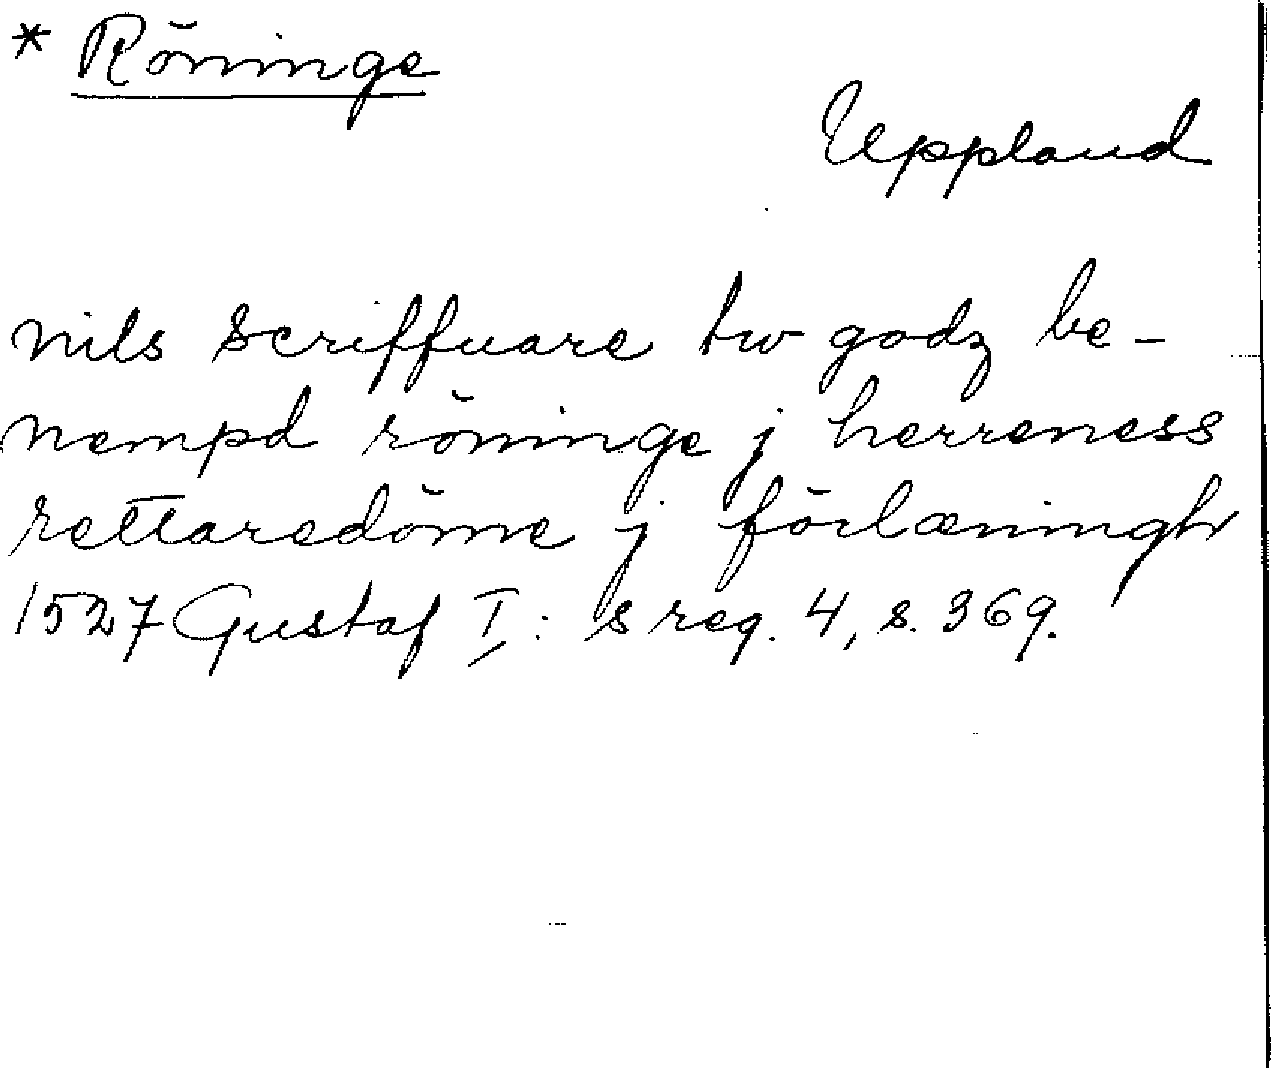 * Röninge
Uppland
nils scriffuare tw godz be-
nempd röninge j herreness
rettaredöme j förlæningh
1527 Gustaf I:s reg. 4, s. 369.